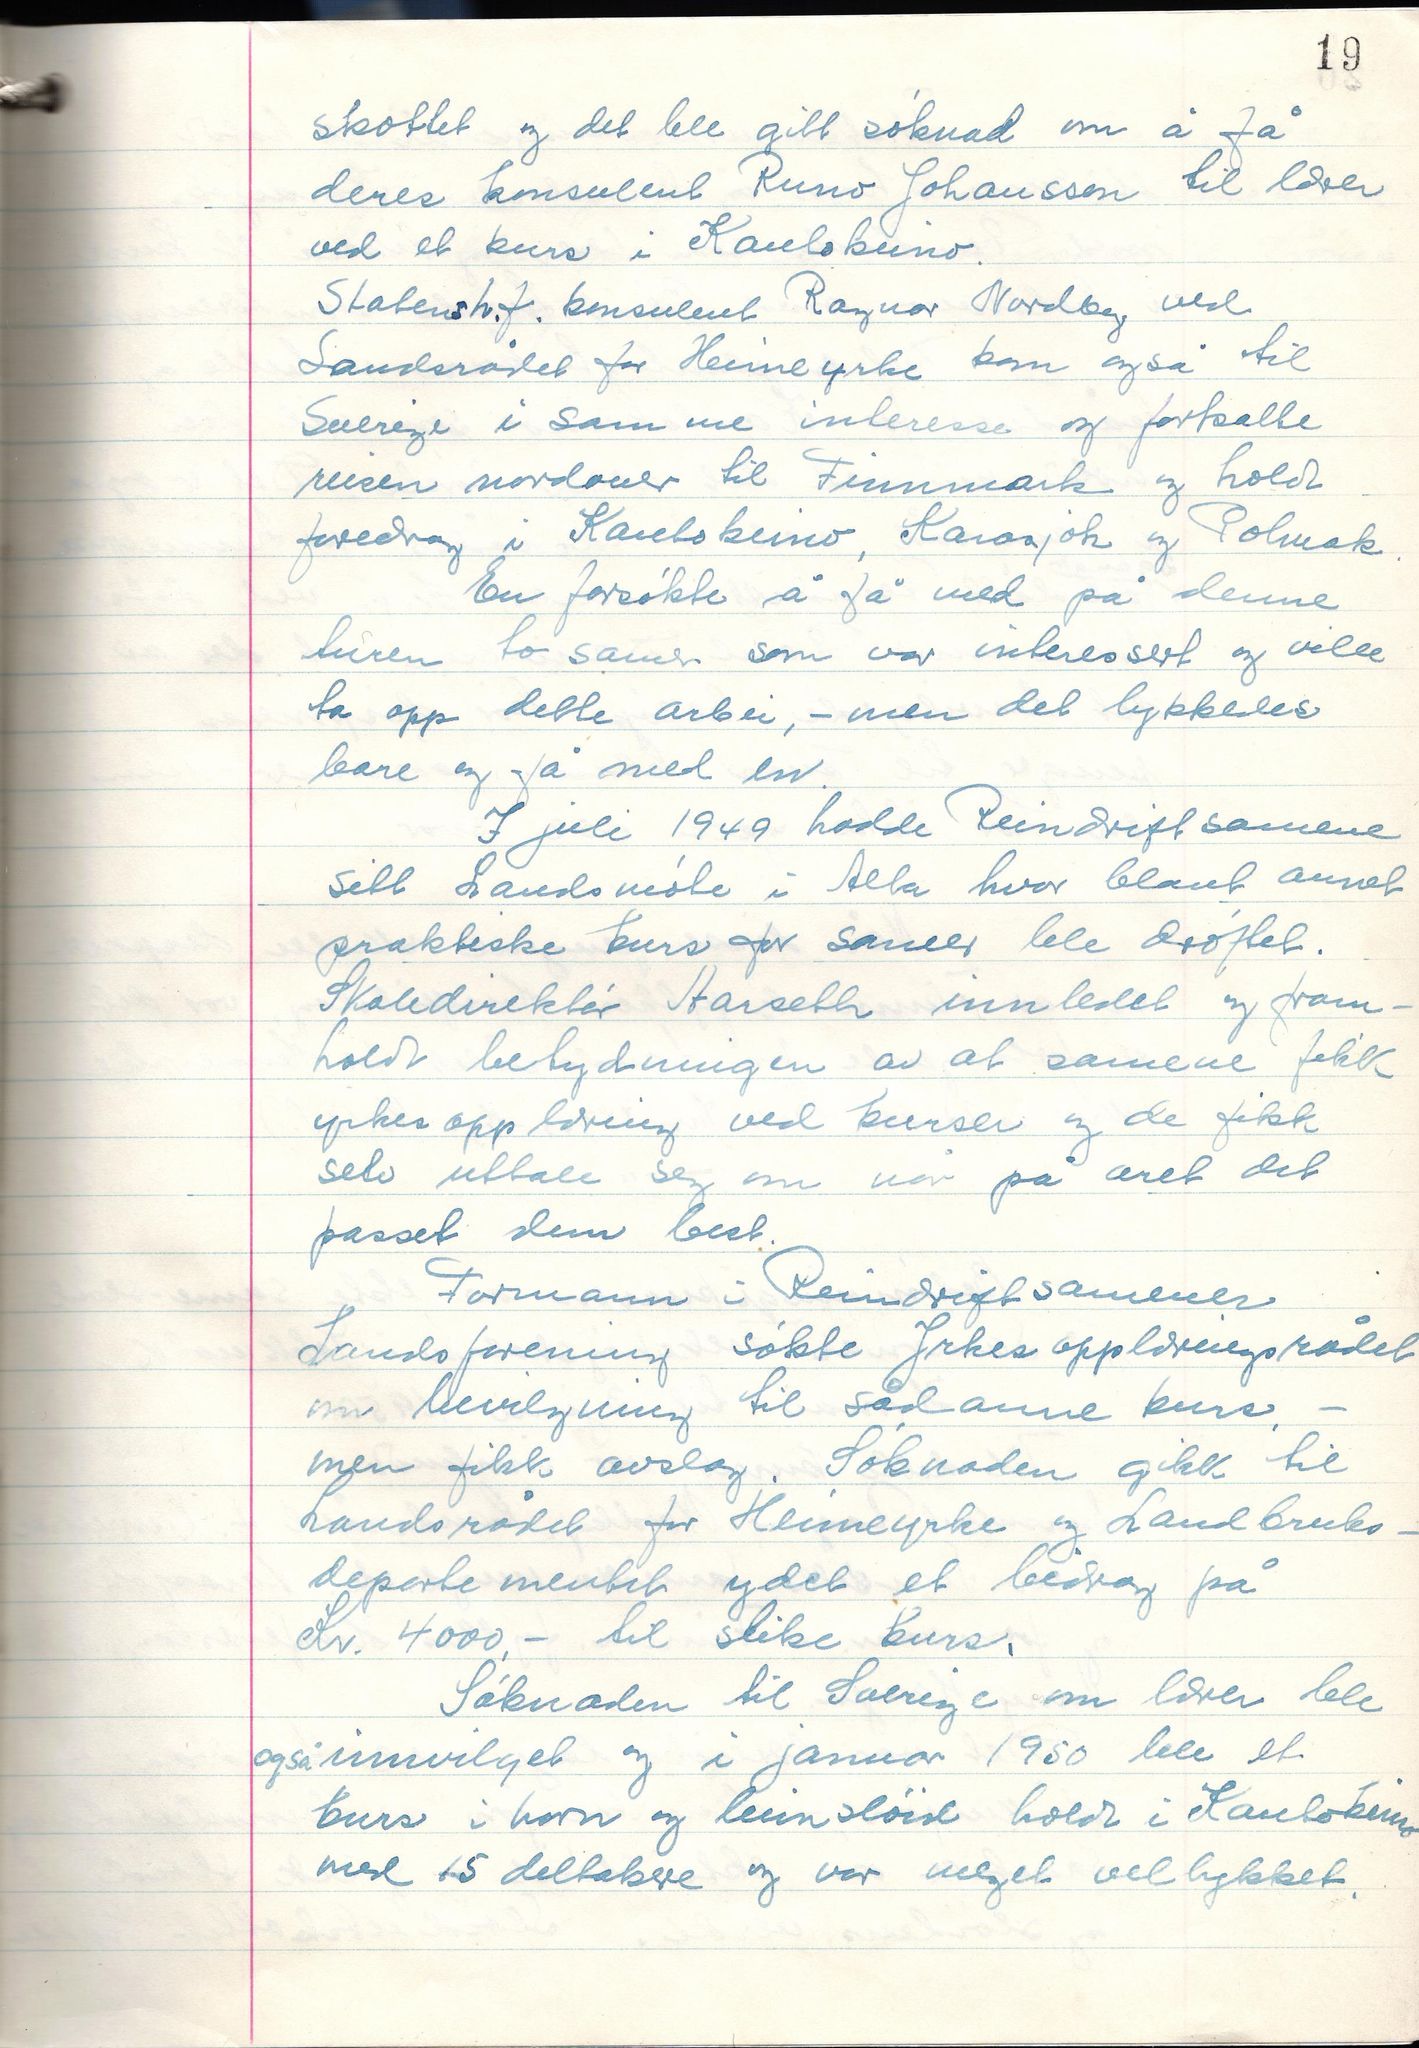 19
skottet og det ble gitt söknad om å få
deres konsulent Runo Johansson til lærer
ved et kurs i Kautokeino.
Statens h.f. konsulent Ragnar Nordby ved
Landsrådet for Heimeyrke kom også til
Sverige i samme interesse og fortsatte
reisen nordover til Finnmark og holdt
foredrag i Kautokeino, Karasjok og Polmak.
En forsökte å få med på denne
turen to samer som var interessert og ville
ta opp dette arbei, - men det lykkedes
bare og få med en.
I juli 1949 hadde Reindriftsamene
sitt Landsmöte i Alta hvor blant annet
praktiske kurs for samer ble dröftet.
Skoledirektör Aarseth innledet og fram-
holdt betydningen av at samene fikk
yrkesopplæring ved kurser og de fikk
selv uttale seg om når på året det
passet dem best.
Formann i Reindriftsamenes
Landsforening sökte Yrkesopplæringsrådet
om bevilgning til sådanne kurs, -
men fikk avslag. Söknaden gikk til
Landsrådet for Heimeyrke og Landbruks-
departementet ydet et bidrag på
Kr. 4000,- til slike kurs.
Söknaden til Sverige om lærer ble
også innvilget og i januar 1950 ble et
kurs i horn og beinslöid holdt i Kautokeino
med 15 deltakere og var meget vellykket.